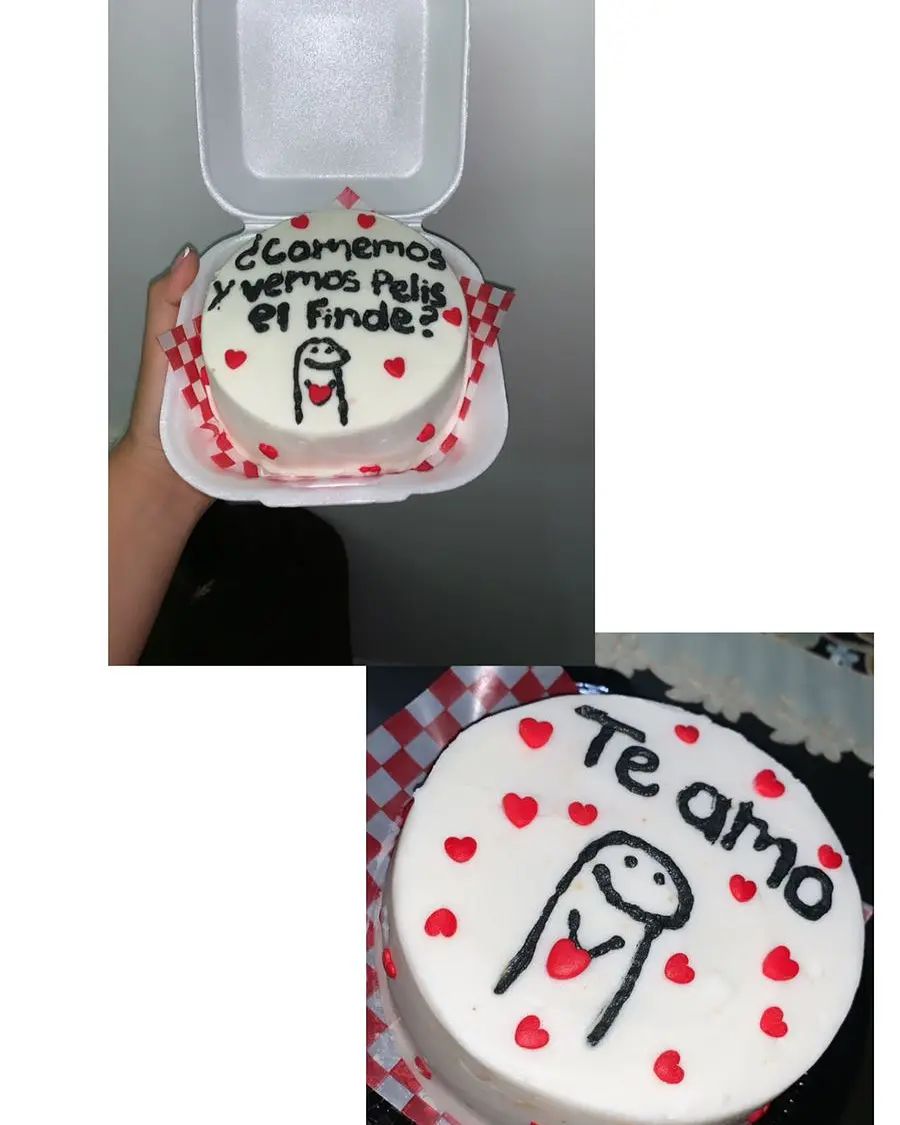 ¿Comemos
y vemos Pelis
el Finde?
Te amo